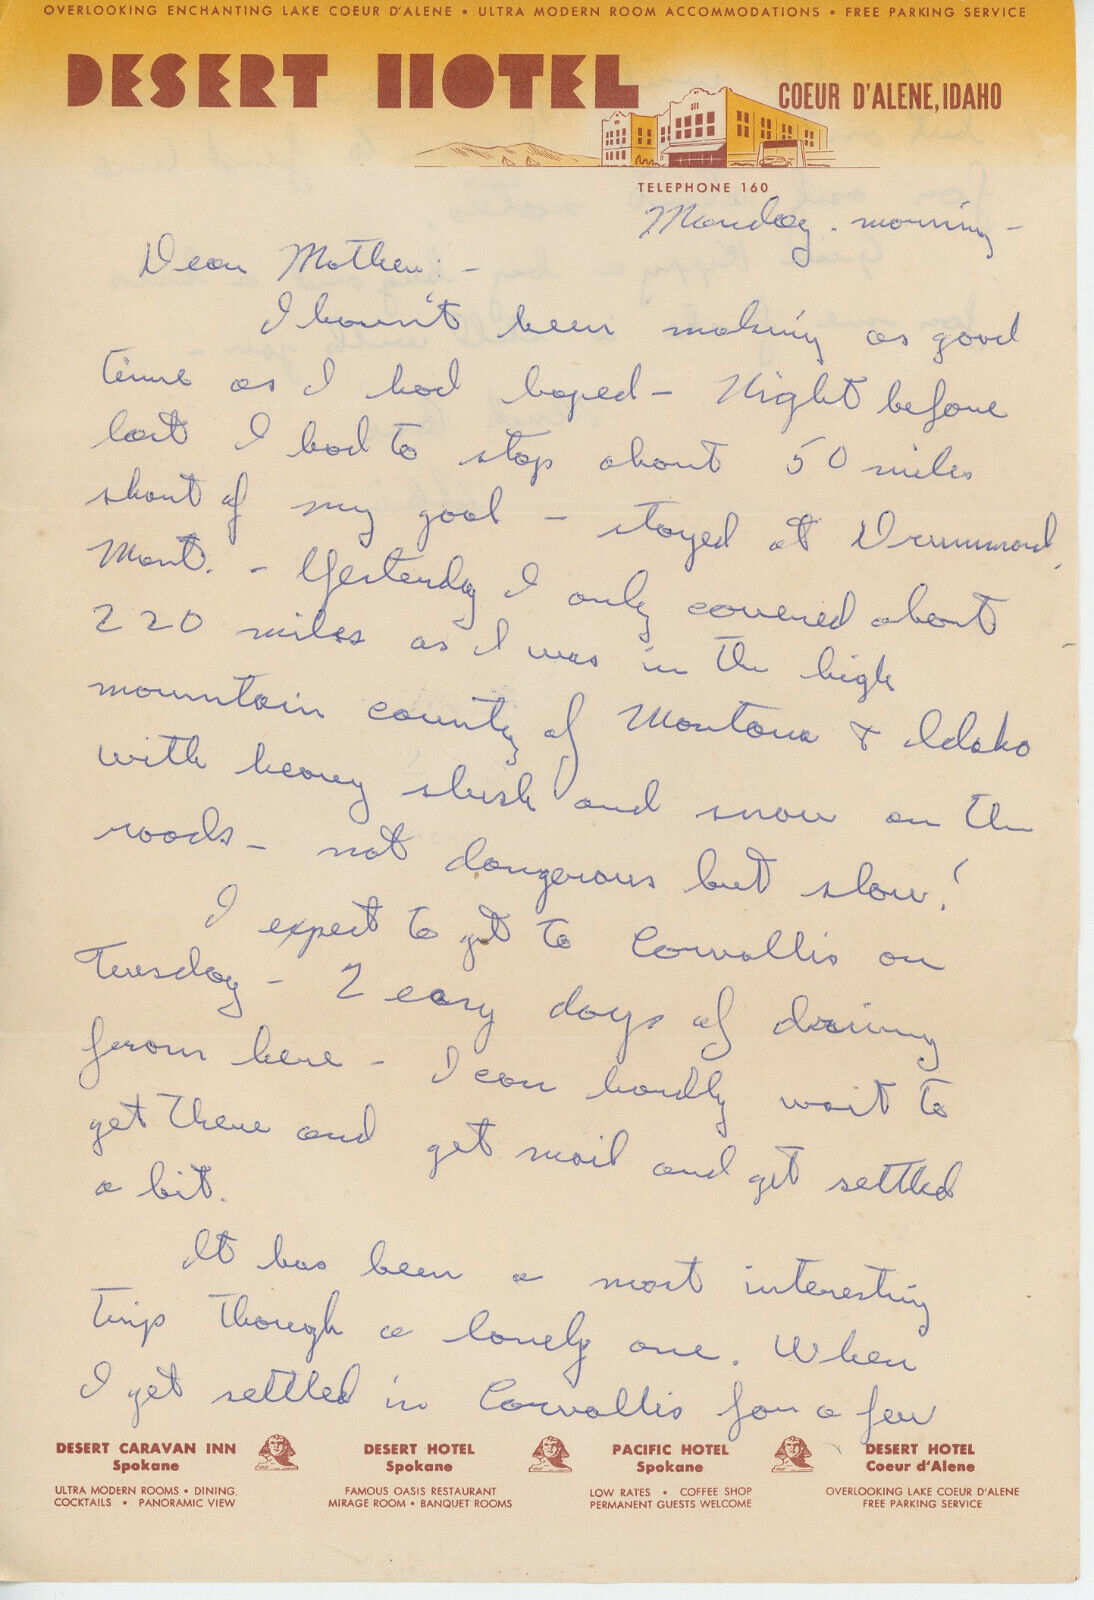 OVERLOOKING ENCHANTING LAKE COEUR D'ALENE • ULTRA MODERN ROOM ACCOMMODATIONS • FREE PARKING SERVICE
DESERT HOTEL
COEUR D'ALENE, IDAHO
TELEPHONE 160
Monday. morning -
Dear Mother: -
I haven't been making as good
time as I had hoped - Night before
last I had to stop about 50 miles
short of my goal - stayed at Drummond,
Mont. - Yesterday I only covered about
220 miles as I was in the high
mountain country of Montana & Idaho
with heavy slush and snow on the
roads - not dangerous but slow!
I expect to get to Corvallis on
Tuesday - 2 easy days of driving
from here - I can hardly wait to
get there and get mail and get settled
a bit.
It has been a most interesting
trip though a lonely one. When
I get settled in Corvallis for a few
DESERT CARAVAN INN
Spokane
ULTRA MODERN ROOMS • DINING
COCKTAILS • PANORAMIC VIEW
DESERT HOTEL
Spokane
FAMOUS OASIS RESTAURANT
MIRAGE ROOM • BANQUET ROOMS
PACIFIC HOTEL
Spokane
LOW RATES • COFFEE SHOP
PERMANENT GUESTS WELCOME
DESERT HOTEL
Coeur d'Alene
OVERLOOKING LAKE COEUR D'ALENE
FREE PARKING SERVICE